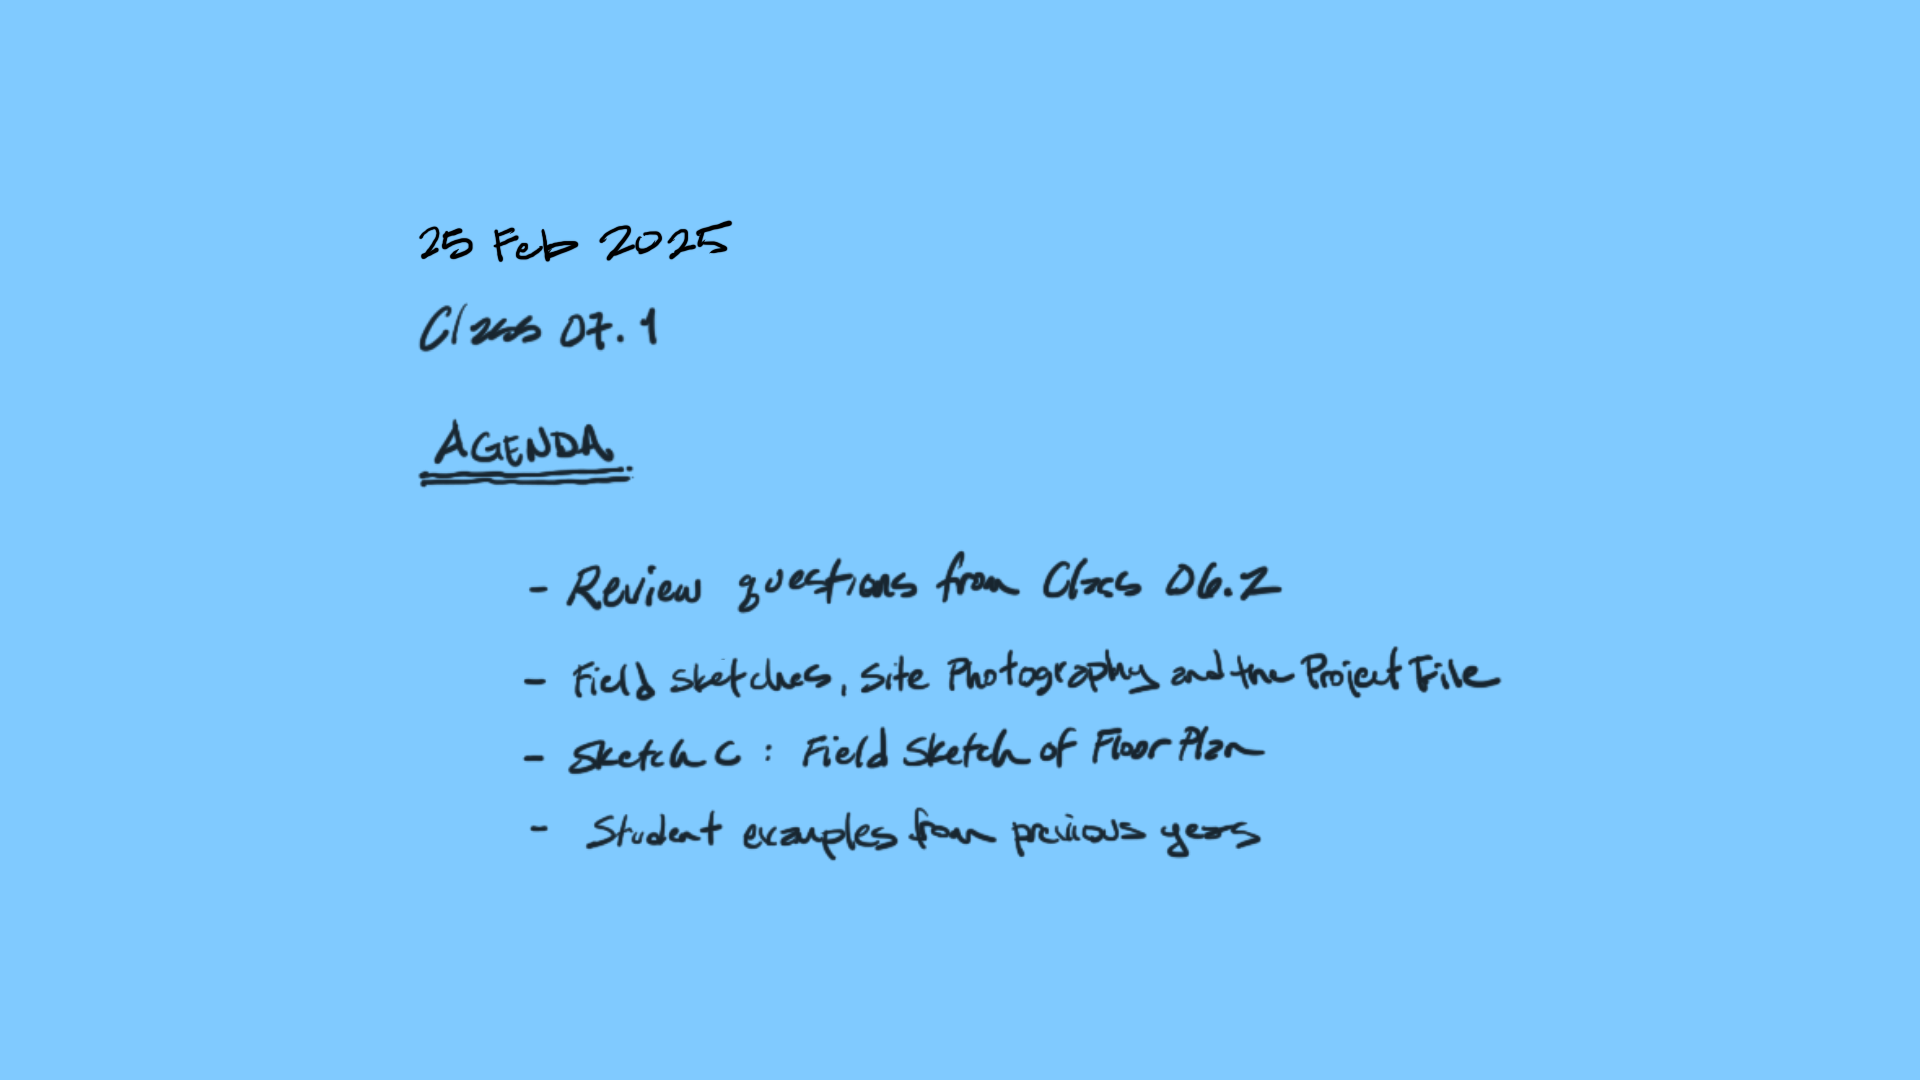 25 Feb 2025
Class 07.1
AGENDA
- Review questions from Class 06.2
- Field sketches, Site Photography and the Project File
- Sketch C : Field Sketch of Floor Plan
- Student examples from previous years